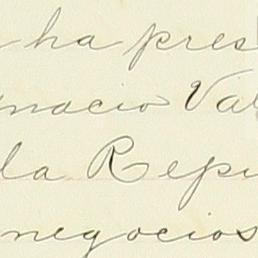 ha pres
nacio Val
la Repu
negocios